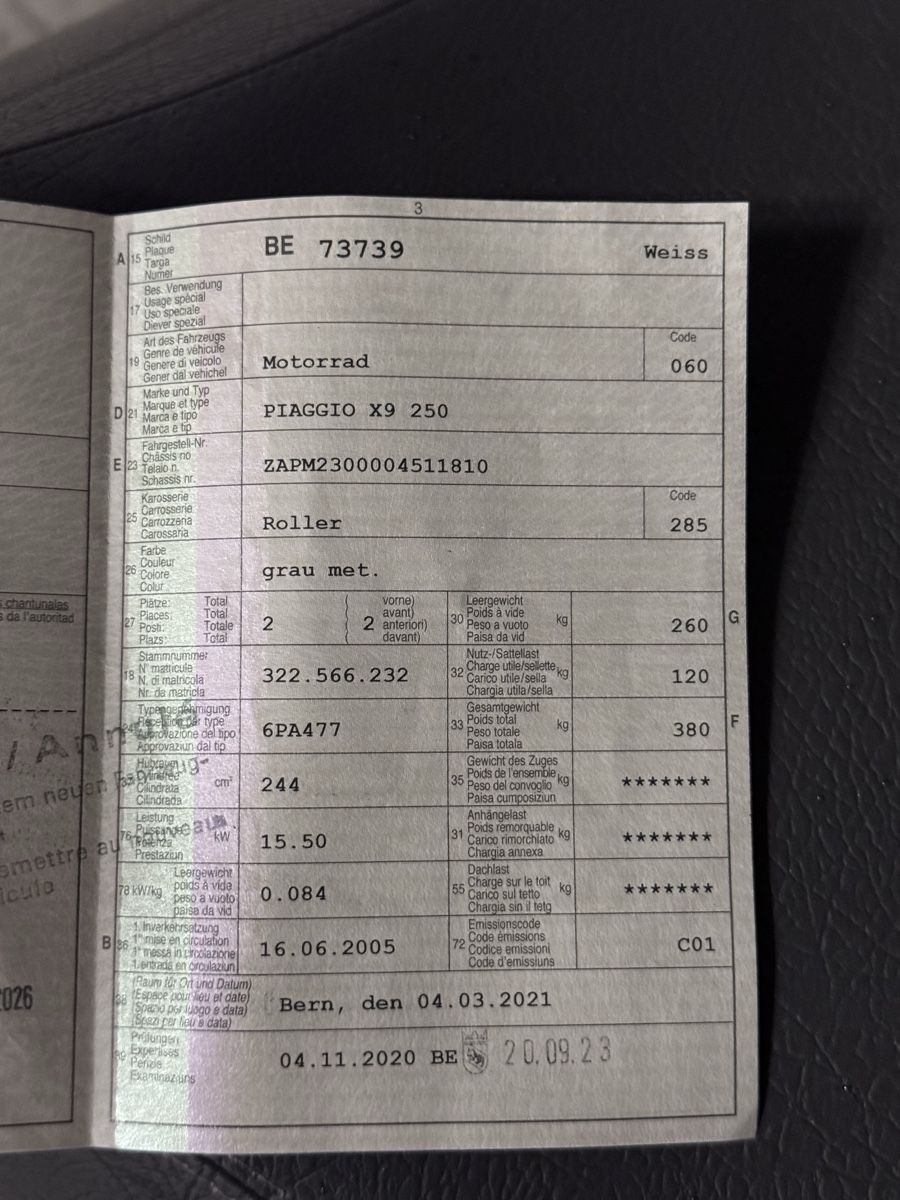 3
A 15 Schild
Plaque
Targa
Numer
BE 73739 Weiss
17 Bes. Verwendung
Usage spécial
Uso speciale
Diever spezial
19 Art des Fahrzeugs
Genre de véhicule
Genere di veicolo
Gener dal vehichel
Motorrad
Code
060
D 21 Marke und Typ
Marque et type
Marca e tipo
Marca e tip
PIAGGIO X9 250
E 23 Fahrgestell-Nr.
Châssis no
Telaio n.
Schassis nr.
ZAPM2300004511810
25 Karosserie
Carrosserie
Carrozzeria
Carossaria
Roller
Code
285
26 Farbe
Couleur
Colore
Colur
grau met.
27 Plätze: Total
Places: Total
Posti: Totale
Plazs: Total
2
2
vorne)
avant)
anteriori)
davant)
30 Leergewicht
Poids à vide
Peso a vuoto
Paisa da vid
kg
260
G
18 Stammnummer
N° matricule
N. di matricola
Nr. da matricla
322.566.232
32 Nutz-/Sattellast
Charge utile/sellette
Carico utile/sella
Chargia utila/sella
kg
120
Typengenehmigung
Réception par type
Approvazione del tipo
Approvaziun dal tip
6PA477
33 Gesamtgewicht
Poids total
Peso totale
Paisa totala
kg
380
F
Hubraum
Cylindrée
Cilindrata
Cilindrada
cm³
244
35 Gewicht des Zuges
Poids de l'ensemble
Peso del convoglio
Paisa cumposiziun
kg
*******
76 Leistung
Puissance
Potenza
Prestaziun
kW
15.50
31 Anhängelast
Poids remorquable
Carico rimorchiato
Chargia annexa
kg
*******
78 kW/kg
Leergewicht
poids à vide
peso a vuoto
paisa da vid
0.084
55 Dachlast
Charge sur le toit
Carico sul tetto
Chargia sin il tetg
kg
*******
B 36 1. Inverkehrsetzung
1re mise en circulation
1a messa in circolazione
1. entrada en circulaziun
16.06.2005
72 Emissionscode
Code émissions
Codice emissioni
Code d'emissiuns
C01
38 (Raum für Ort und Datum)
(Espace pour lieu et date)
(Spazio per luogo e data)
(Spazi per lieu e data)
Bern, den 04.03.2021
39 Prüfungen
Expertises
Perizie
Examinaziuns
04.11.2020 BE 20.09.23
s chantunalas
s da l'autoritad
em neuen
emettre au nouveau
2026